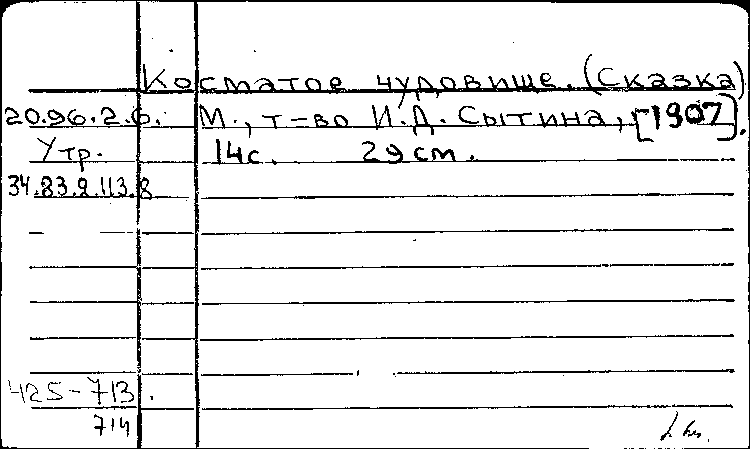 Косматое чудовище. (Сказка)
20.96.2.6. М., т-во И.Д. Сытина, [1907].
Утр. 14с. 29 cm.
34.83.2.113.8
425-713.
714